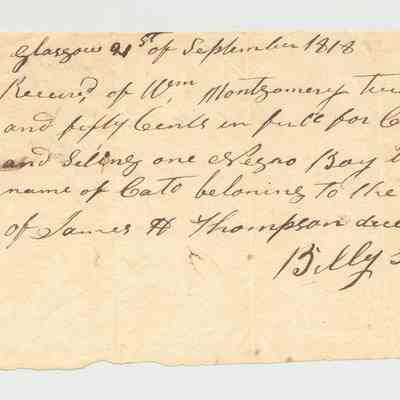 Glasgow 21st of September 1818
Receivd of Wm Montgomery
and fifty Cents in full for
and Selling one Negro Boy
name of Cato beloning to the
of James H Thompson
Billy